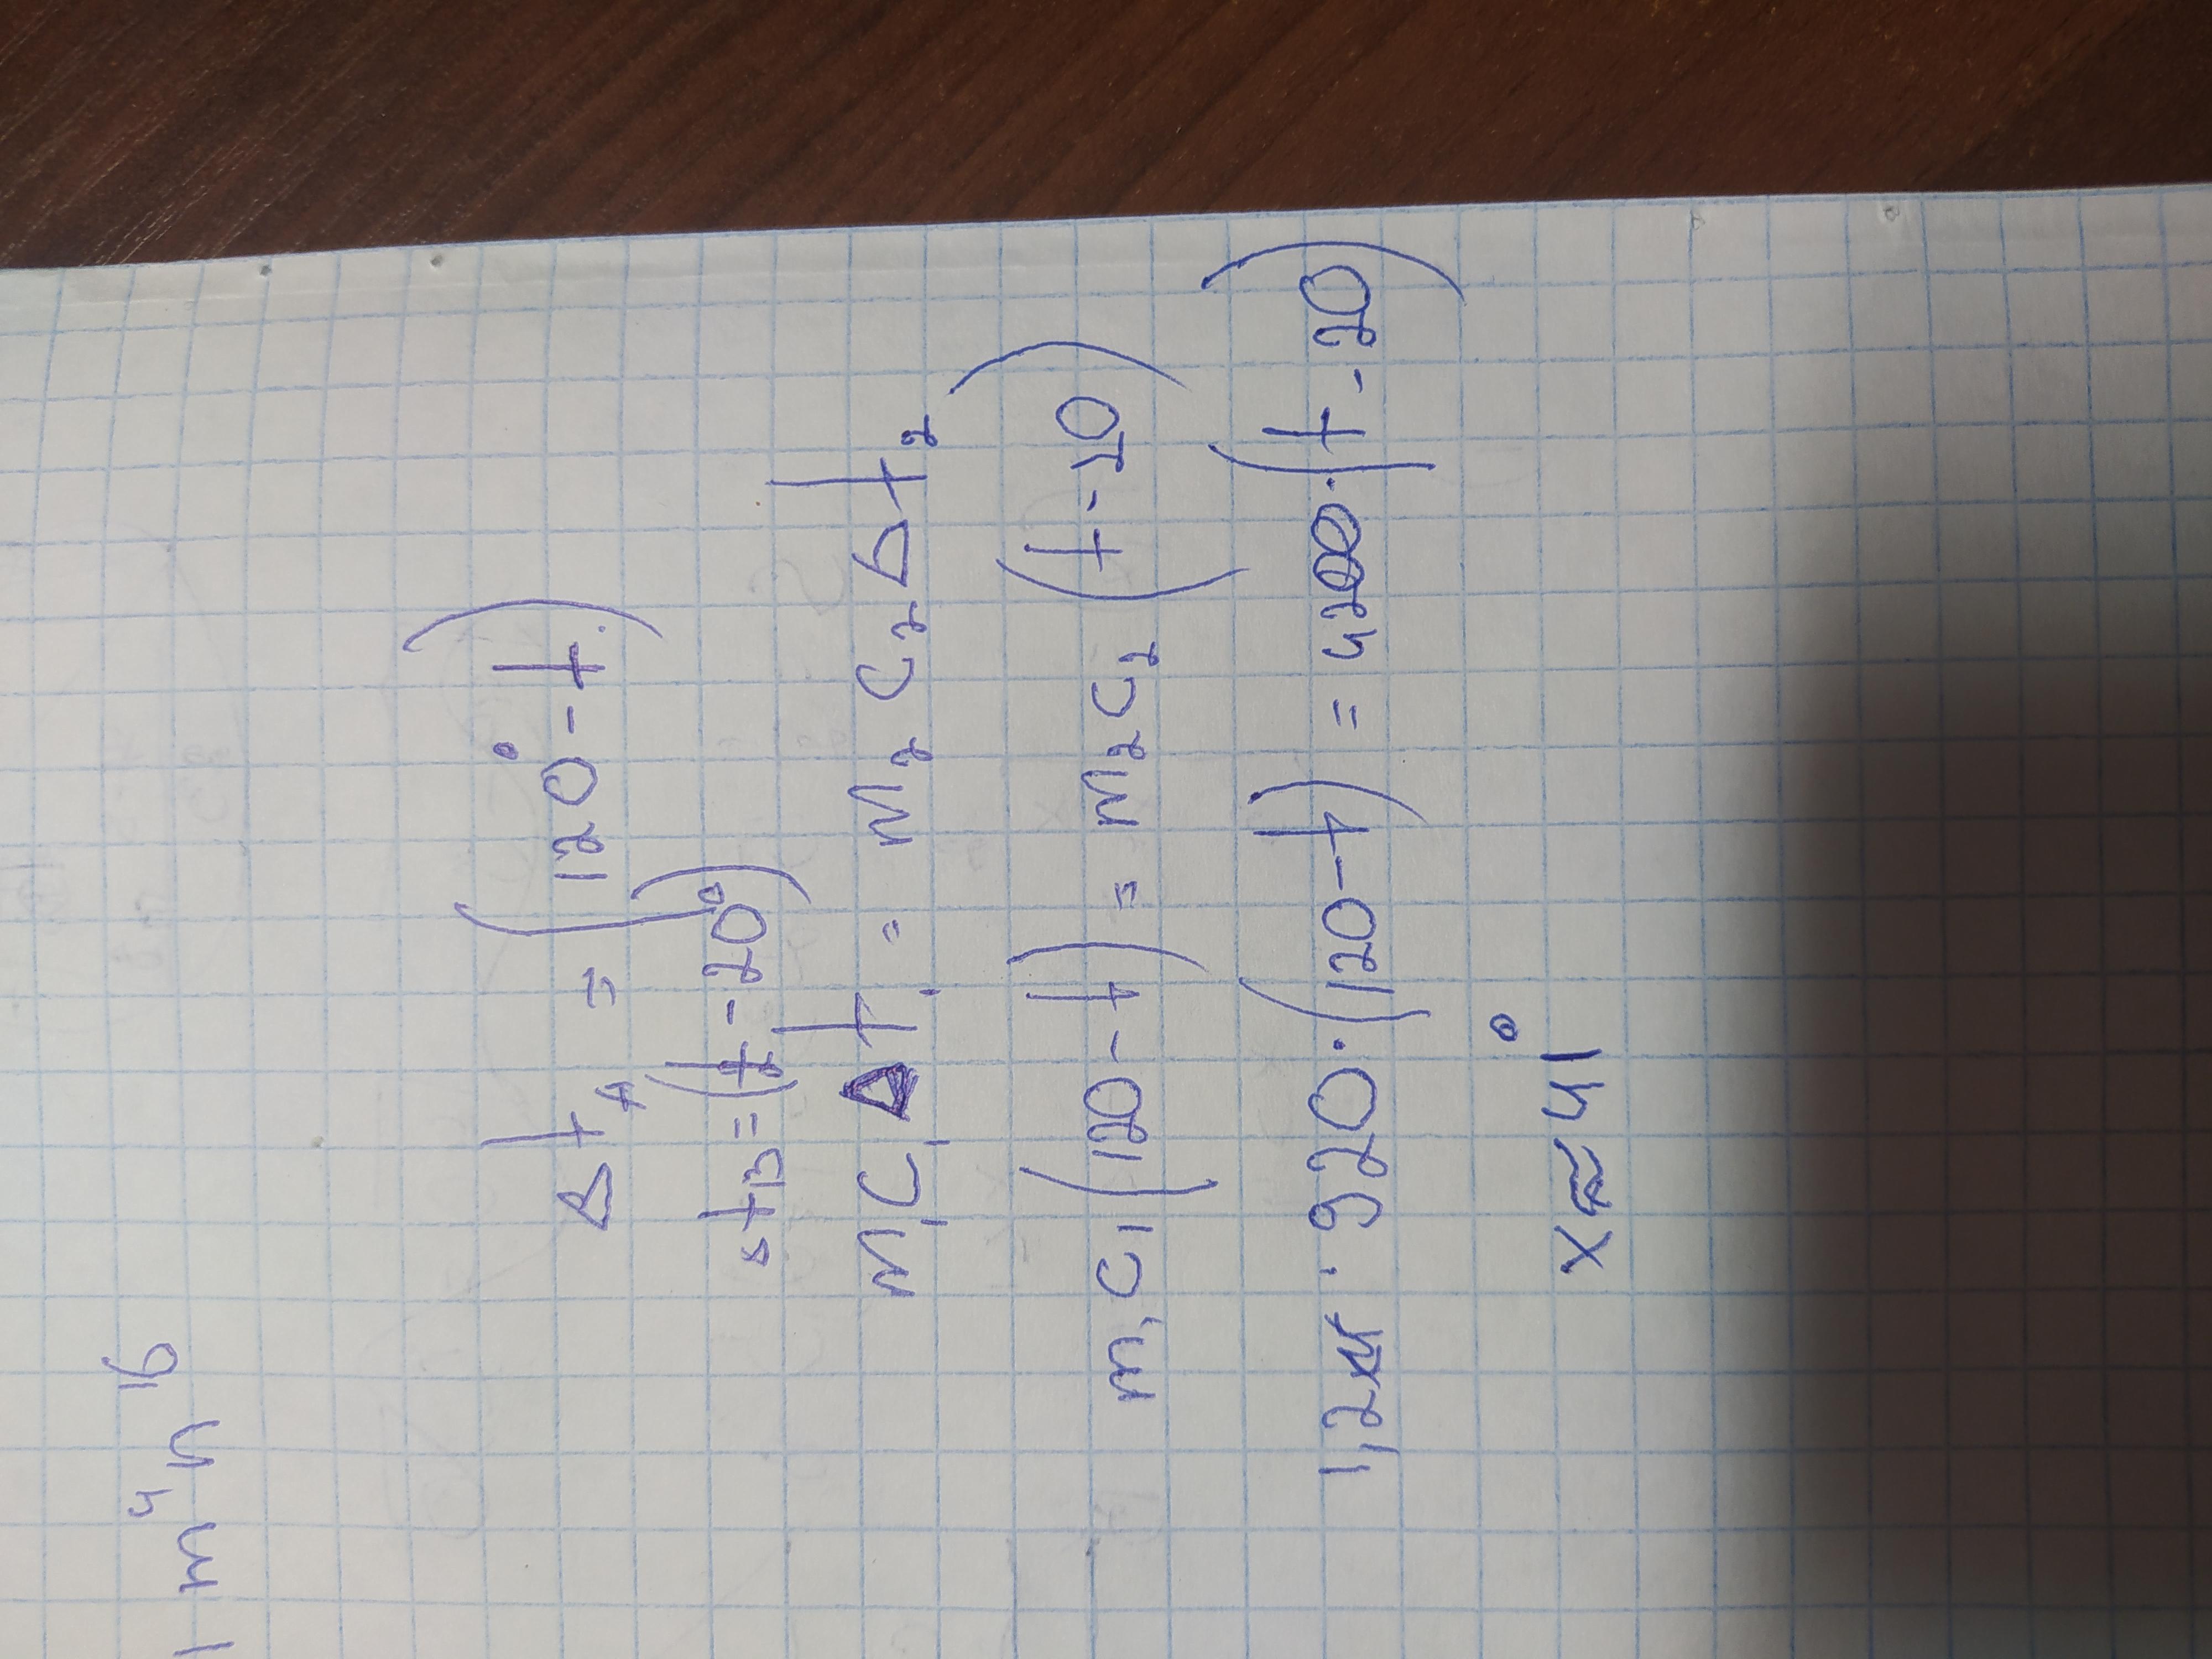 1 m⁴ n¹⁶
Δt_A = (120° - t)
Δt_B = (t - 20°)
m₁c₁Δt₁ = m₂c₂Δt₂
m₁c₁(120 - t) = m₂c₂ (t - 20)
1,2кг · 920 · (120 - t) = 4200 · (t - 20)
x ≈ 41°